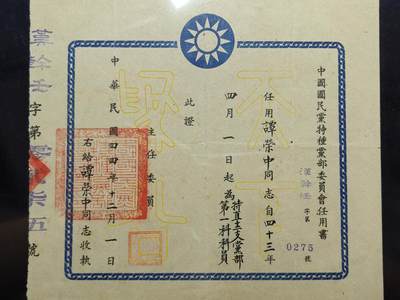 中國國民黨特種黨部委員會任用書
漢幹任字第 0275 號
任用譚榮中同志自四十三年
四月一日起為特直十二支黨部
第一科科員
此證
主任委員
中華民國四四年十二月一日
右給譚榮中同志收執
漢幹任字第 號